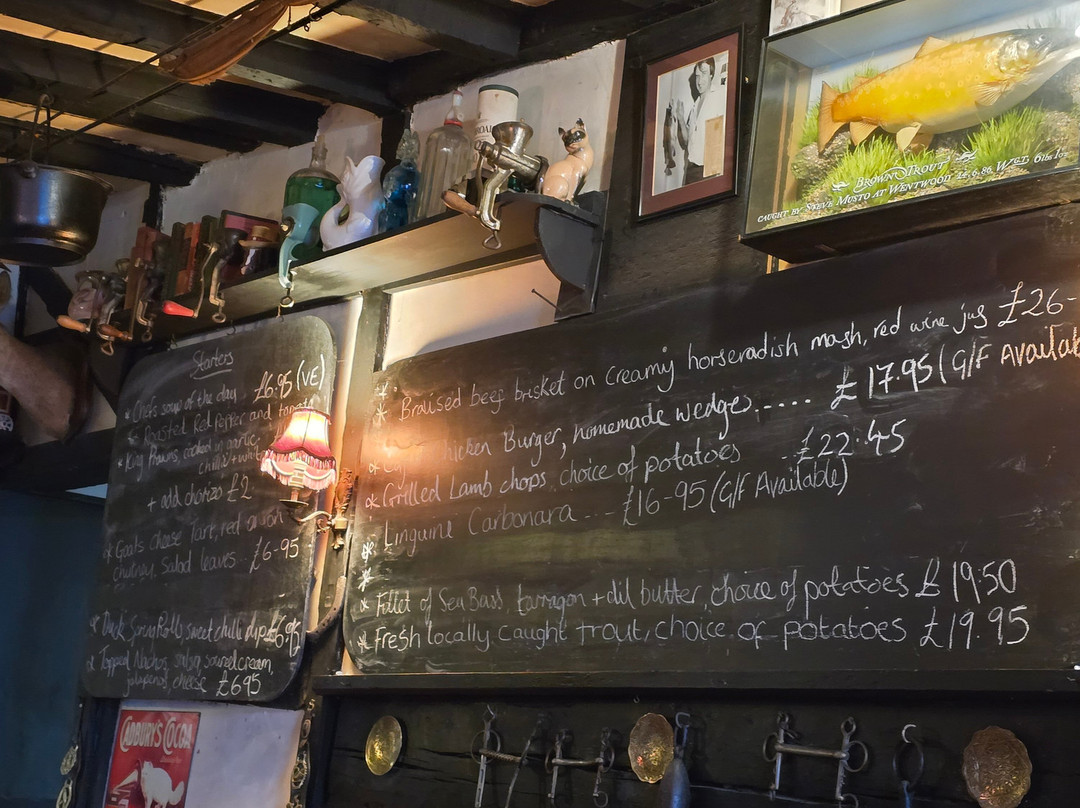 Starters
* Chefs soup of the day £6.95 (VE)
* Roasted Red Pepper and tomato
* King Prawns, cooked in garlic,
chilli + white
+ add chorizo £2
* Goats cheese Tart, red onion
chutney, salad leaves - £6-95
* Duck Spring Rolls sweet chilli dip £6.95
* Topped Nachos, salsa, soured cream,
jalapenos, cheese £6.95
* Braised beef brisket on creamy horseradish mash, red wine jus £26-
Chicken Burger, homemade wedges..... £17.95 (G/F Availab
* Grilled Lamb chops, choice of potatoes - £22.45
* Linguine Carbonara --- £16-95 (G/F Available)
* Fillet of Sea Bass, tarragon + dil butter, choice of potatoes £19.50
* Fresh locally caught trout, choice of potatoes £19.95
BROWN TROUT
CAUGHT BY STEVE MUSTO AT WENTWOOD 15.6.86. WGT. 6lbs 1oz
CADBURY'S COCOA